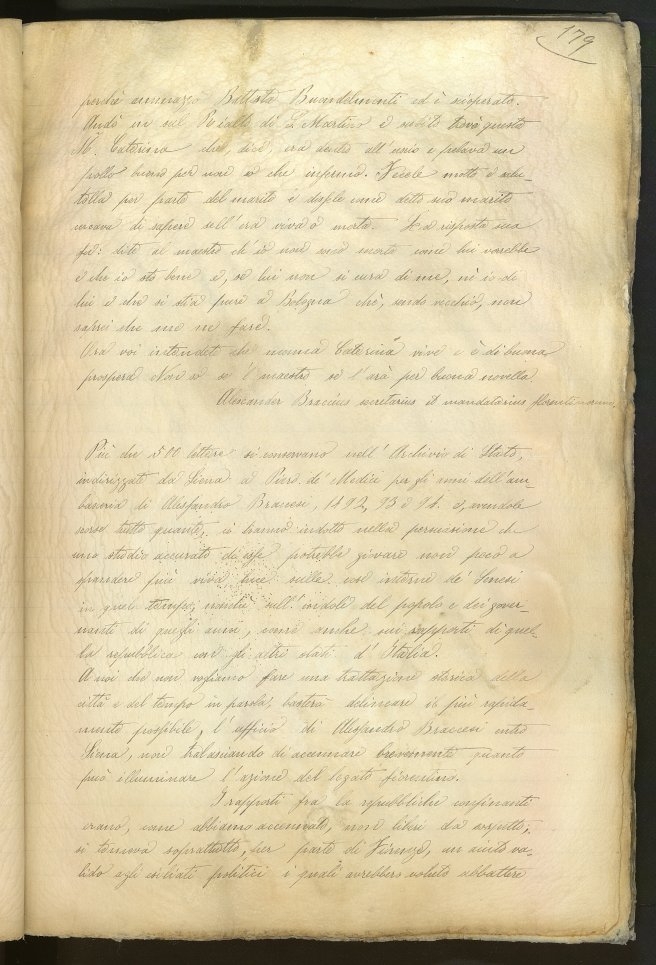 179
perchè ammazzò Battista Buondelmonti ed è disperato.
Andò in sul Rialto di S. Martino e subito trovò questa
M.ª Caterina che, dice, era dentro all'uscio e pelava un
pollo buono per non so che infermo. Feceli motto e
per parte del marito e come detto suo marito
cercava di sapere sell'era viva o morta. La risposta sua
fu: dite al maestro ch'io non sono morta come lui vorebbe
e che io sto bene e, se lui non si cura di me, nè io di
lui e che si stia pure a Bologna chè, sendo vecchio, non
saprei che me ne fare.
Ora voi intendete che monna Caterina vive e è di buona
prospera. Non so se 'l maestro se l'arà per buona novella
Alexander Braccius secretarius et mandatarius florentinorum.
Più che 500 lettere si conservano nell'Archivio di Stato,
indirizzate da Siena a Piero de' Medici per gli anni dell'am-
basceria di Alessandro Braccesi, 1492, 93 e 94. e, avendole
scorse tutte quante, ci hanno indotto nella persuasione che
uno studio accurato di esse potrebbe giovare non poco a
spandere più viva luce sulle cose interne de' Senesi
in quel tempo, nonchè sull'indole del popolo e dei gover-
nanti di quegli anni, come anche nei rapporti di quel-
la repubblica con gli altri stati d'Italia.
A noi che non vogliamo fare una trattazione storica della
città e del tempo in parola, basterà delineare il più rapida-
mente possibile, l'ufficio di Alessandro Braccesi entro
Siena, non tralasciando di accennare brevemente quanto
può illuminare l'azione del legato fiorentino.
I rapporti fra le repubbliche confinanti
erano, come abbiamo accennato, non liberi da sospetti;
si temeva soprattutto, per parte di Firenze, un aiuto va-
lido agli esiliati politici i quali avrebbero voluto abbattere